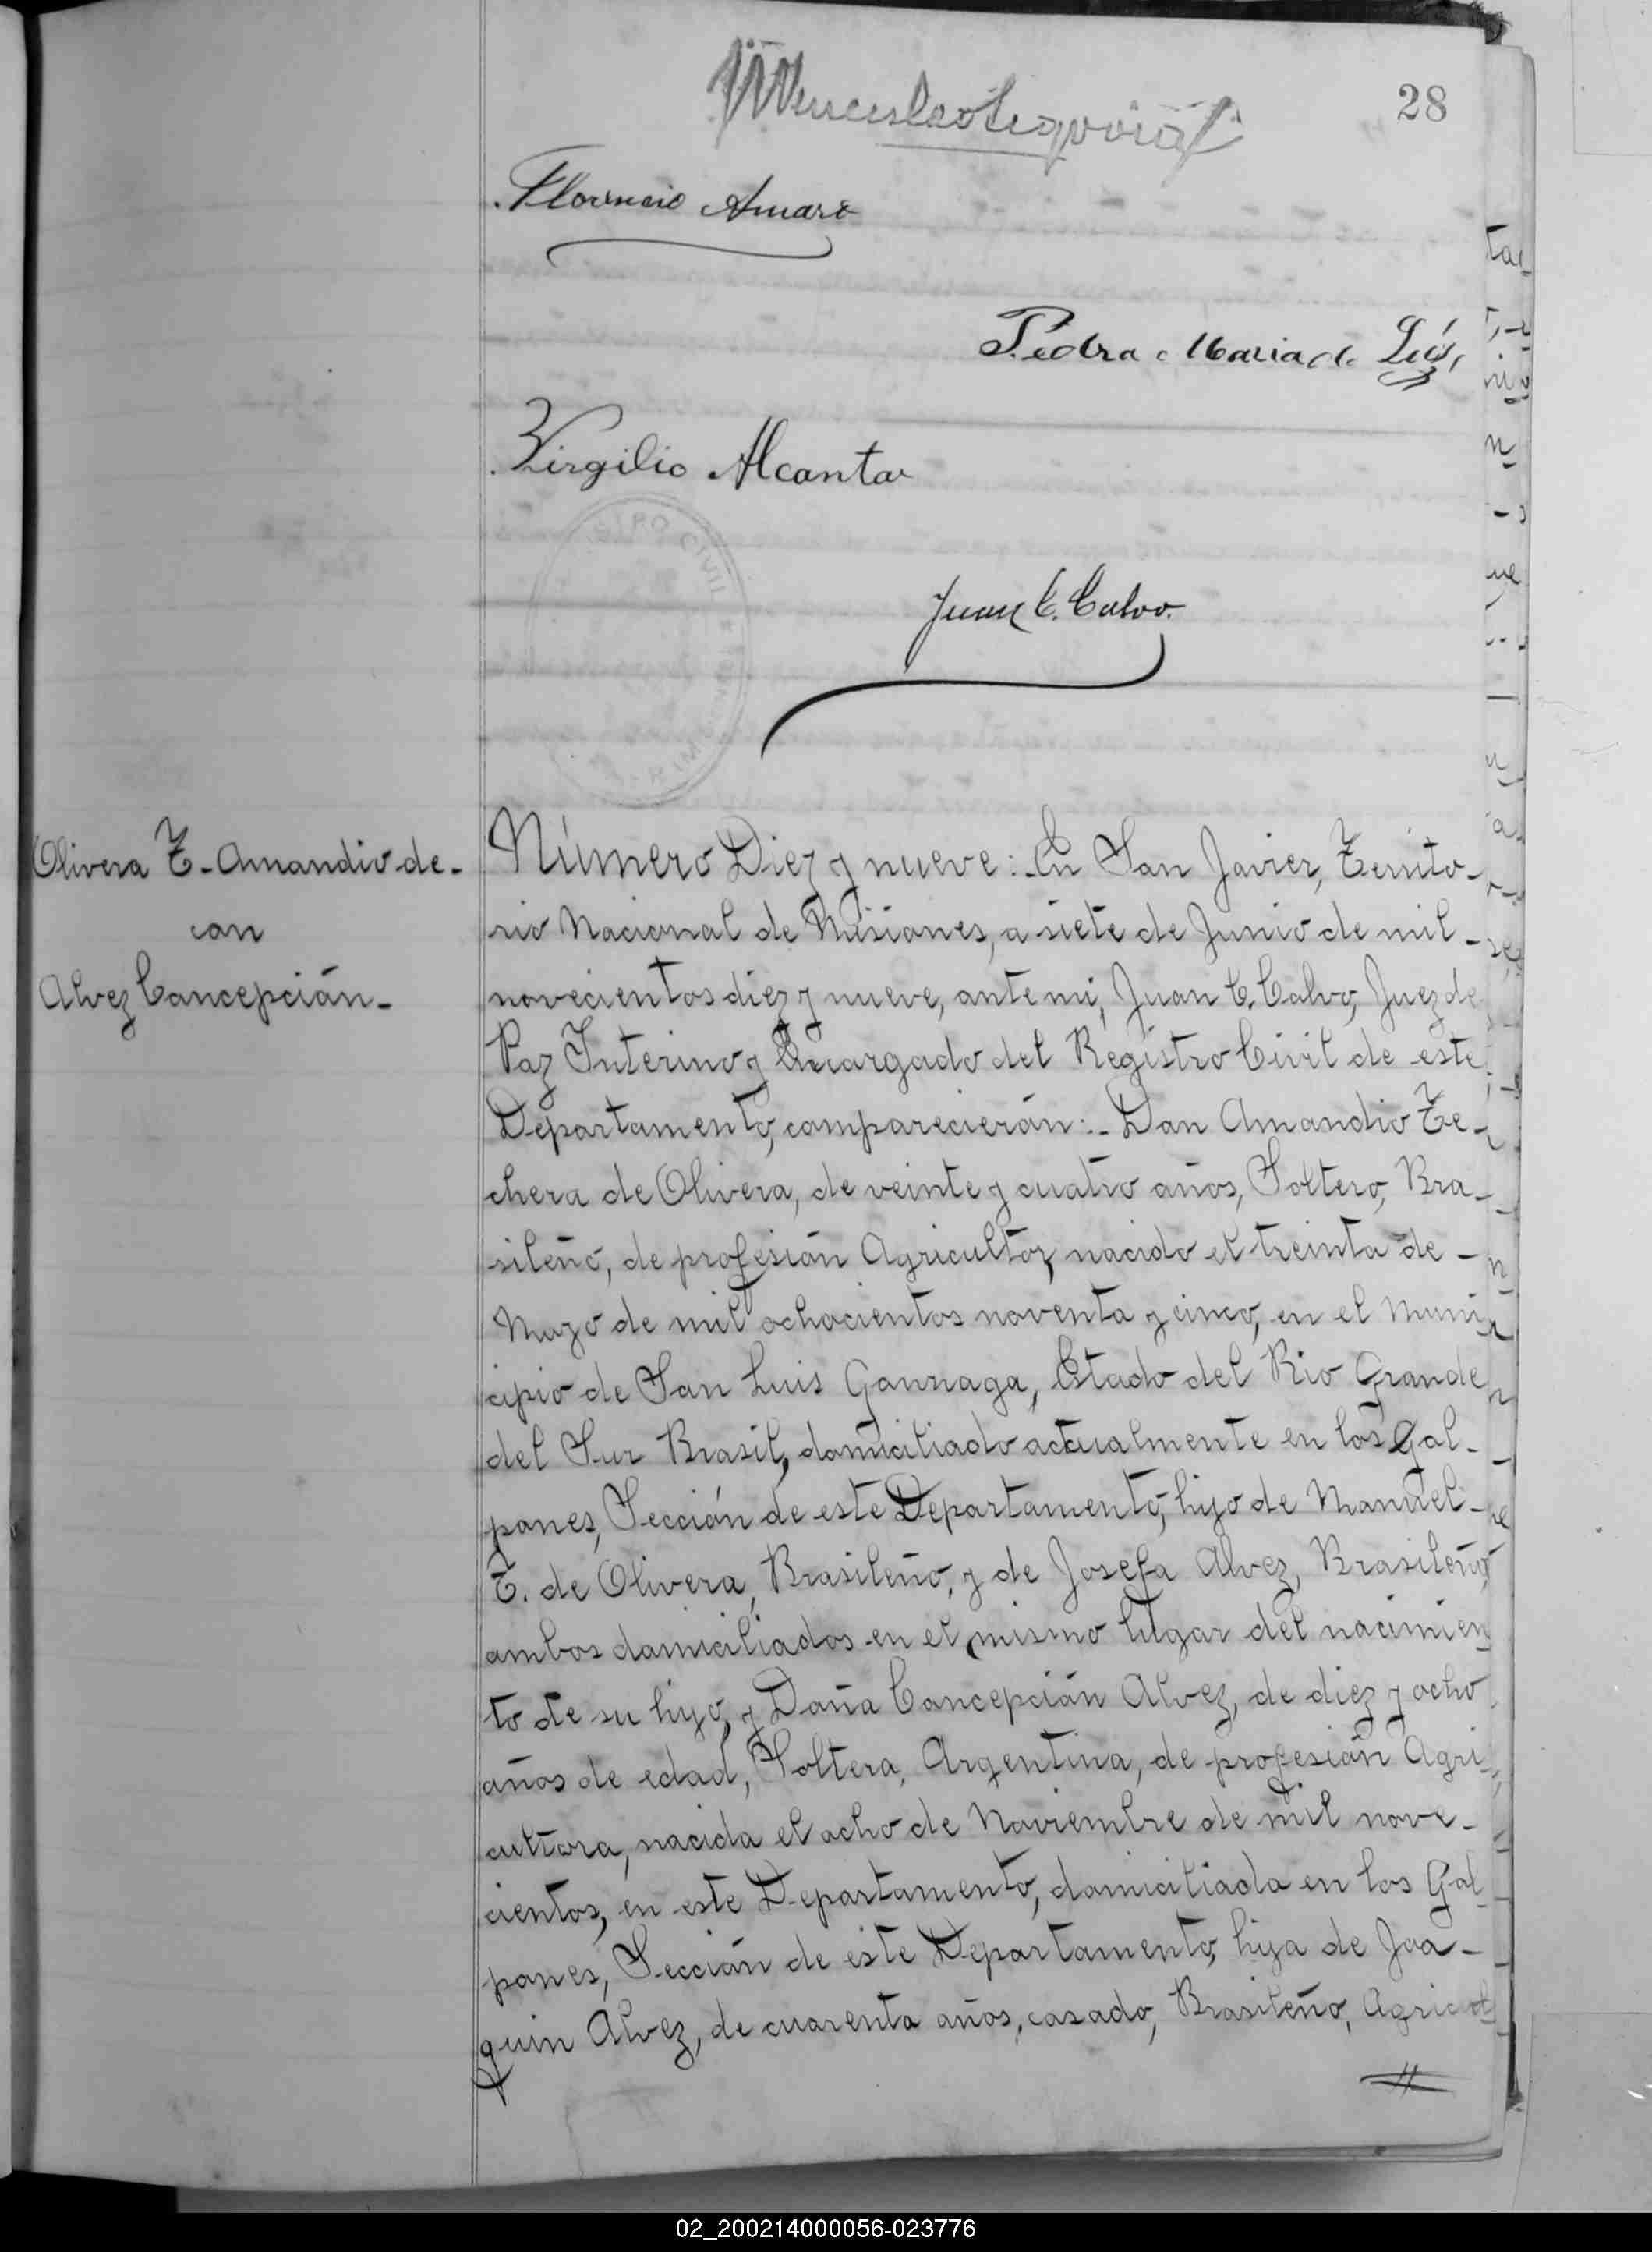 28
Florencio Amaro
Pedra Maria de Luz
Virgilio Alcanta
Juan C. Calvo.
Olivera T. Amandio de-
con
Alvez Concepción-
Número Diez y nueve: En San Javier, Territo-
rio Nacional de Misiones, a siete de Junio de mil-
novecientos diez y nueve, ante mi, Juan C. Calvo, Juez de
Paz Interino y Encargado del Registro Civil de este
Departamento, comparecierón:- Don Amandio Te-
chera de Olivera, de veinte y cuatro años, Soltero, Bra-
sileño, de profesión Agricultor, nacido el treinta de-
Mayo de mil ochocientos noventa y cinco, en el Muni-
cipio de San Luis Gonzaga, Estado del Rio Grande
del Sur Brasil, domiciliado actualmente en los Gal-
pones, Sección de este Departamento, hijo de Manuel-
T. de Olivera, Brasileño, y de Josefa Alvez, Brasileño,
ambos domiciliados en el mismo lugar del nacimien
to de su hijo, y Doña Concepción Alvez, de diez y ocho
años de edad, Soltera, Argentina, de profesión Agri
cultora, nacida el ocho de Noviembre de mil nove-
cientos, en este Departamento, domiciliada en los Gal
pones, Sección de este Departamento, hija de Joa-
quin Alvez, de cuarenta años, casado, Brasileño, Agricul
02_200214000056-023776